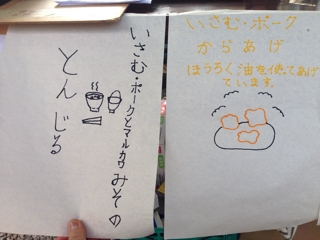 いさむ・ポークとマルカワみその
とんじる
いさむ・ポーク
からあげ
ほうろく油を使ってあげ
ています。